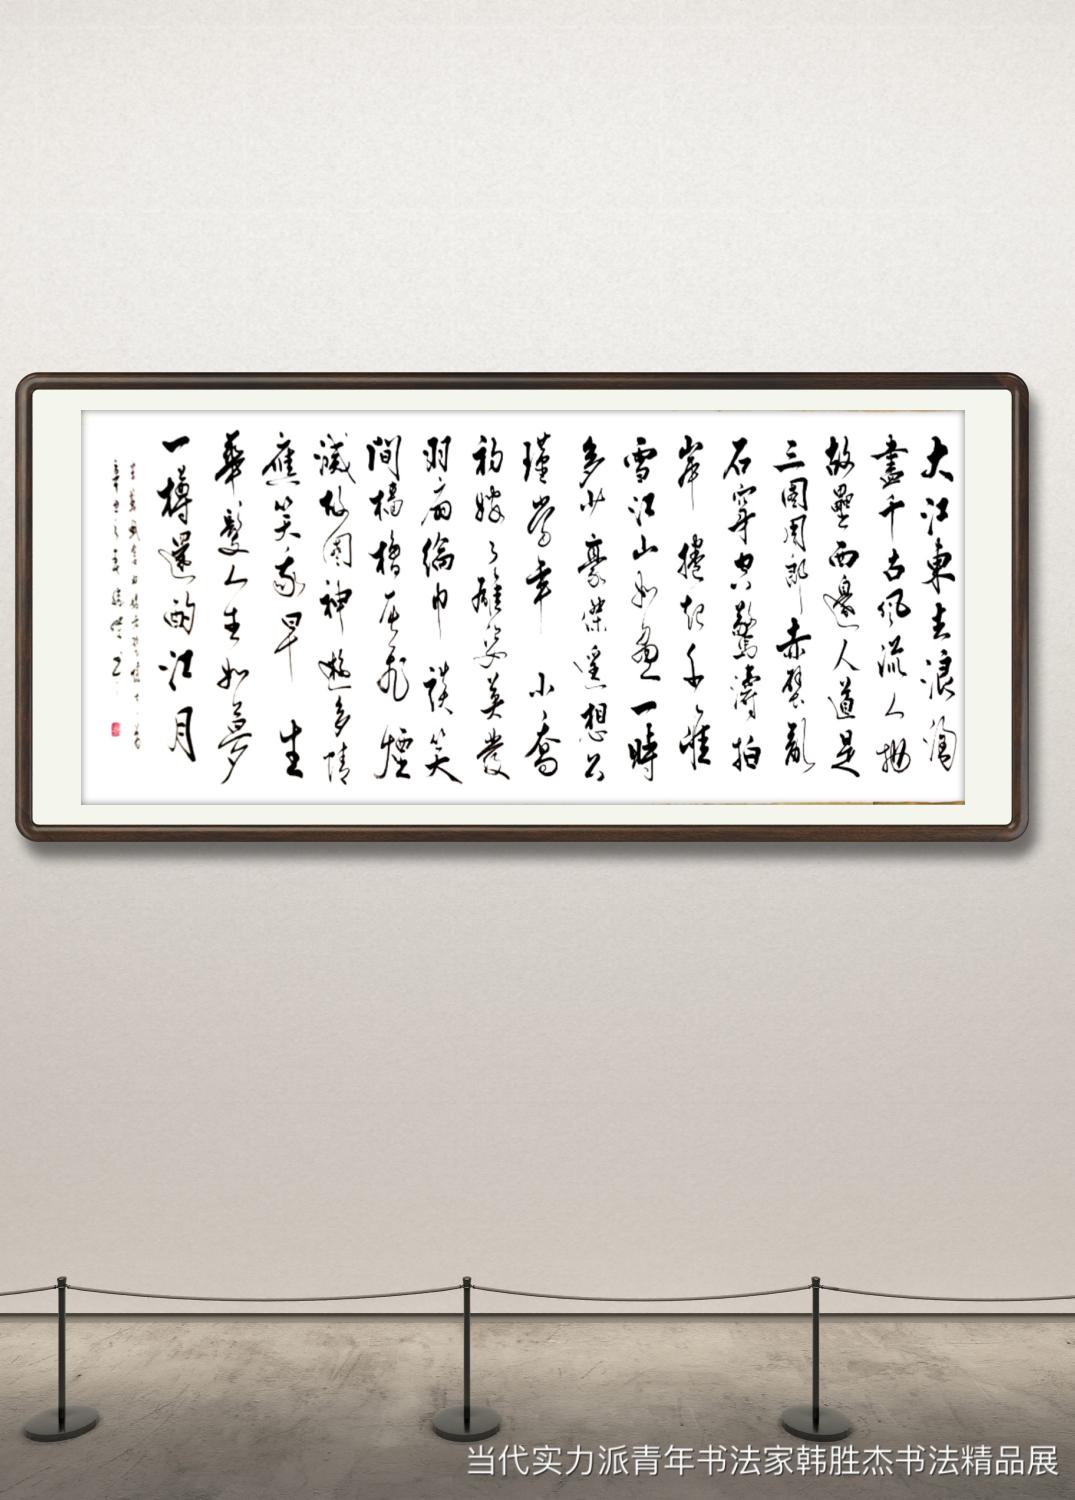 大江東去浪淘
盡千古風流人物
故壘西邊人道是
三國周郎赤壁亂
石穿空驚濤拍
岸捲起千堆
雪江山如畫一時
多少豪傑遙想公
瑾當年小喬
初嫁了雄姿英發
羽扇綸巾談笑
間檣櫓灰飛煙
滅故國神遊多情
應笑我早生
華髮人生如夢
一樽還酹江月
当代实力派青年书法家韩胜杰书法精品展